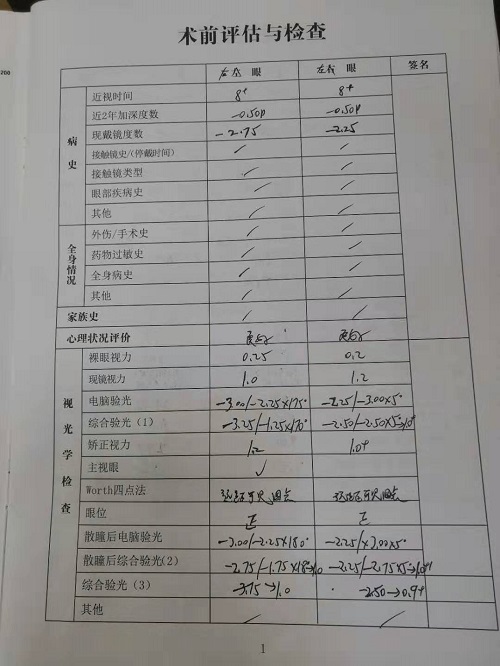 200
术前评估与检查
右 眼 左 眼 签名
病史
近视时间 8+ 8+
近2年加深度数 -0.50 -0.50
现戴镜度数 -2.75 -2.25
接触镜史/(停戴时间) / /
接触镜类型 / /
眼部疾病史 / /
其他 / /
全身情况
外伤/手术史 / /
药物过敏史 / /
全身病史 / /
其他 / /
家族史 / /
心理状况评价 良好 良好
视光学检查
裸眼视力 0.25 0.2
现镜视力 1.0 1.2
电脑验光 -3.00/-2.25×175° -2.25/-3.00×5°
综合验光(1) -3.25/-1.25×170° -2.50/-2.50×5°→1.0+
矫正视力 1.2 1.0+
主视眼 ✓
Worth四点法
眼位 正 正
散瞳后电脑验光 -3.00/-2.25×180° -2.25/×3.00×5°
散瞳后综合验光(2) -2.75/-1.75×180→1.0 -2.25/-2.75×5→1.0+
综合验光(3) -3.75→1.0 -2.50→0.9+
其他 / /
1